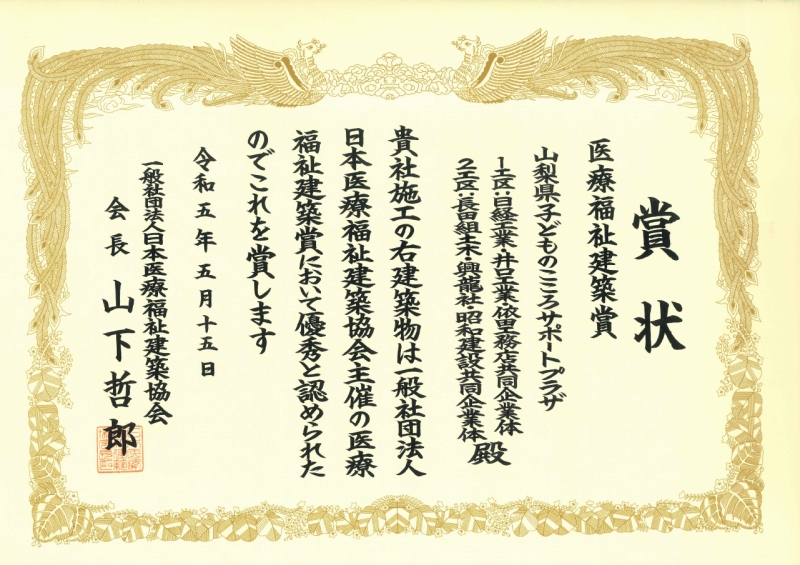 賞状
医療福祉建築賞
山梨県子どものこころサポートプラザ
1工区:日経工業・井口工業・依里務店共同企業体
2工区:長田組土木・興龍社・昭和建設共同企業体 殿
貴社施工の右建築物は一般社団法人
日本医療福祉建築協会主催の医療
福祉建築賞において優秀と認められた
のでこれを賞します
令和五年五月十五日
一般社団法人日本医療福祉建築協会
会長 山下哲郎